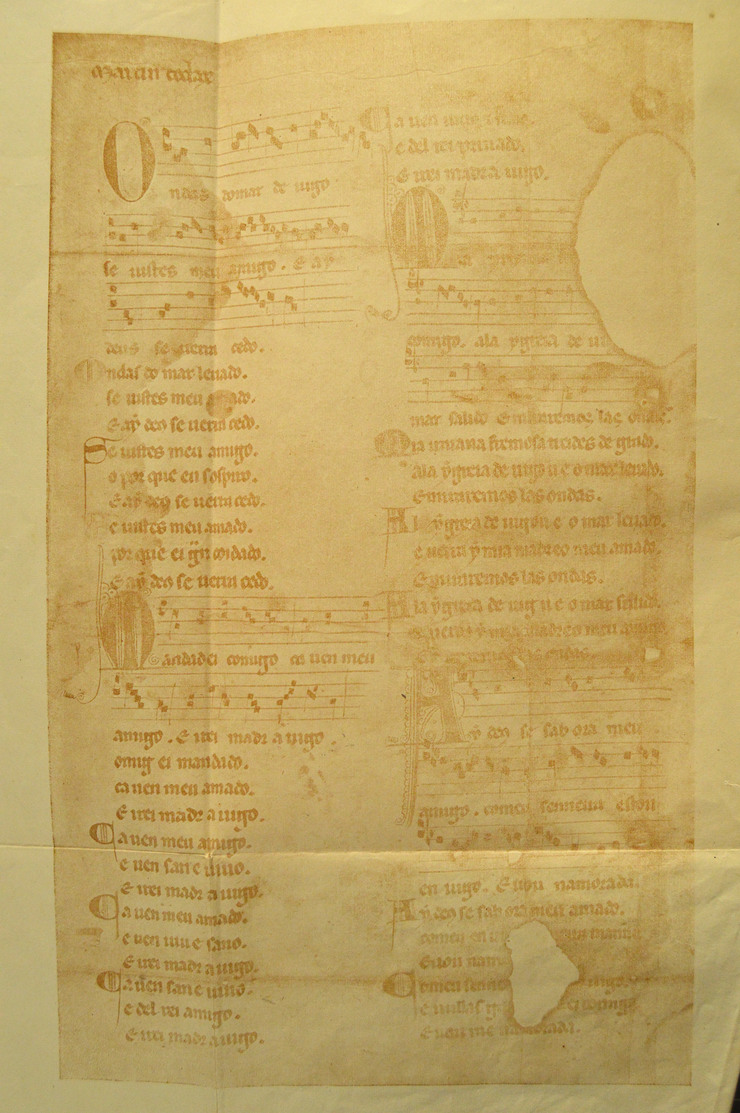 Martin Codax
Ondas do mar de uigo
se uistes meu amigo. E ay
deus se uerra cedo.
Ondas do mar leuado.
se uistes meu amado.
E ay deo se uerra cedo.
Se uistes meu amigo.
o por que eu sospiro.
E ay deo se uerra cedo.
Se uistes meu amado.
por que ei gran coidado.
E ay deo se uerra cedo.
Mandadei comigo ca uen meu
amigo. E irei madr a uigo
omig ei mandado.
ca uen meu amado.
E irei madr a uigo.
Ca uen meu amigo.
e uen san e uiuo.
E irei madr a uigo.
Ca uen meu amado.
e uen uiu e sano.
E irei madr a uigo.
Ca uen san e uiuo.
e del rei amigo.
E irei madr a uigo.
Ca uen uiu e sano.
e del rei priuado.
E irei madr a uigo.
M
comigo. ala ygreia de
mar salido E miraremos las ondas.
Mia yrmana fremosa treides de grado.
ala ygreia de uigo u e o mar leuado.
E miraremos las ondas.
A la ygreia de uigo u e o mar leuado.
e uerra y mia madre o meu amado.
E miraremos las ondas.
A la ygreia de uig u e o mar salido.
e uerra y mia madre o meu amigo
E miraremos las ondas.
Ay deo se sab ora meu
amigo. comeu senneira estou
en uigo. E uou namorada.
Ay deo se sab ora meu amado.
comeu en
E uou nam
Comeu senn uigo.
e nullas g ei comigo
E uou namorada.